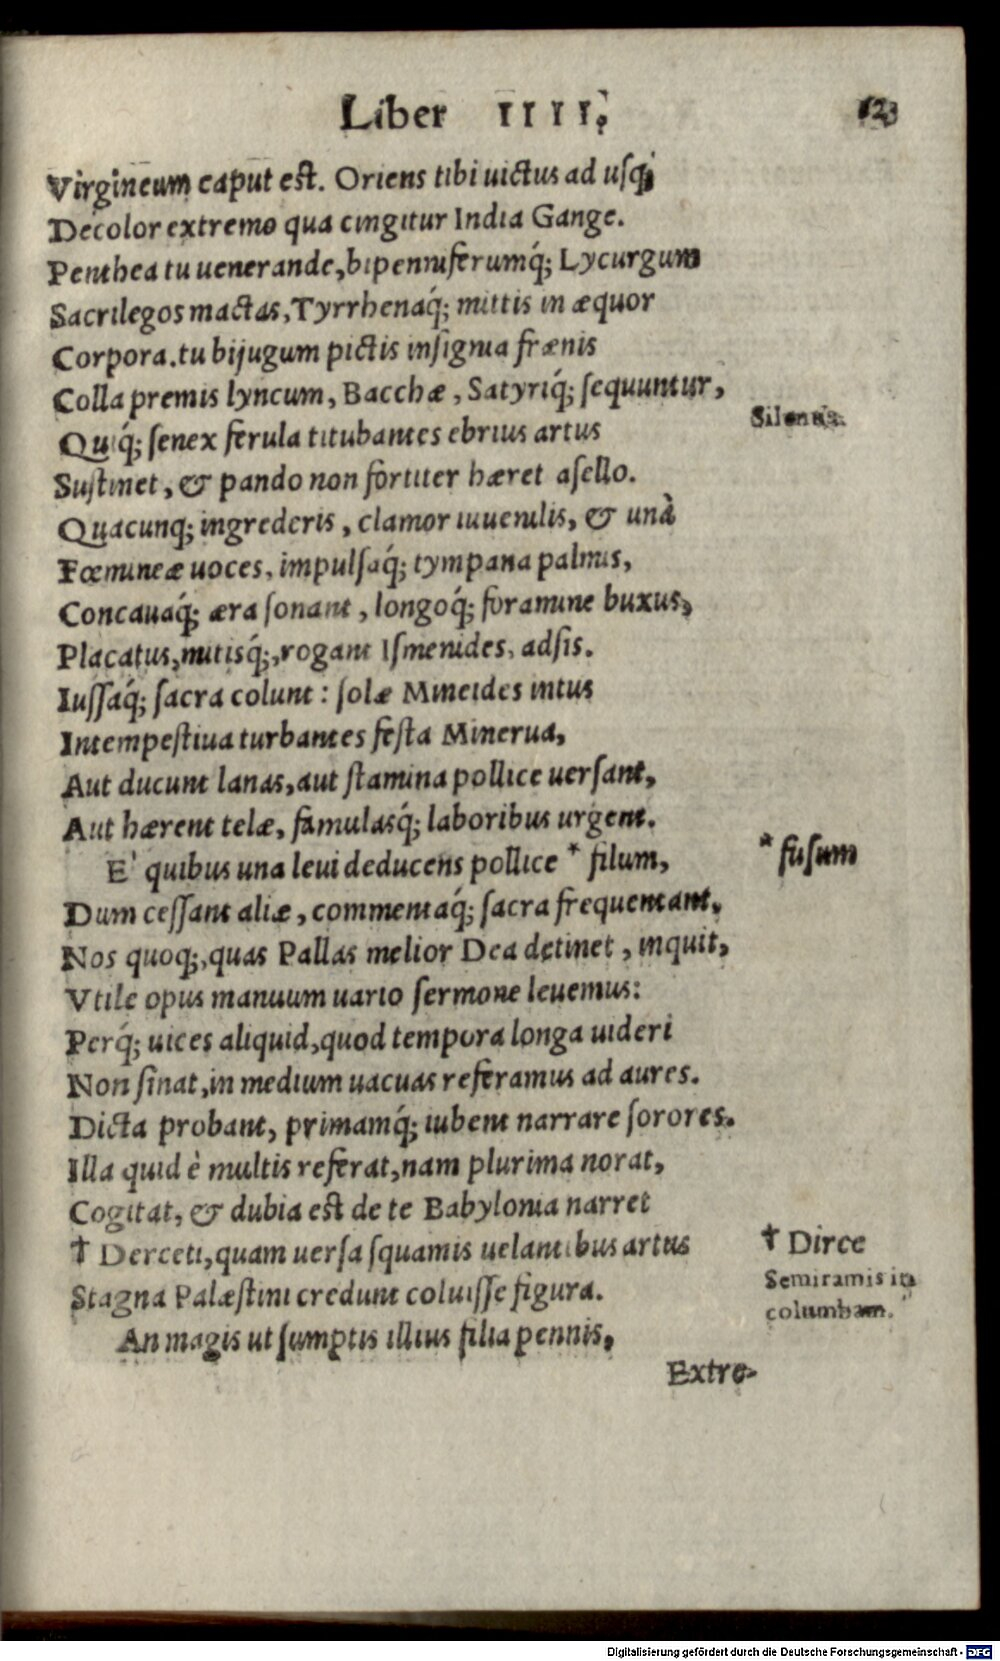 Liber IIII.
Virgineum caput est. Oriens tibi uictus ad usq;
Decolor extremo qua cingitur India Gange.
Penthea tu uenerande, bipenniferumq́; Lycurgum
Sacrilegos mactas, Tyrrhenaq́; mittis in æquor
Corpora. tu bijugum pictis insignia frænis
Colla premis lyncum, Bacchæ, Satyriq́; sequuntur,
Silenus.
Quiq́; senex ferula titubantes ebrius artus
Sustinet, & pando non fortiter hæret asello.
Quacunq; ingrederis, clamor iuuenilis, & unà
Fœmineæ uoces, impulsaq́; tympana palmis,
Concauaq́; æra sonant, longoq́; foramine buxus,
Placatus, mitisq́;, rogant Ismenides, adsis.
Iussaq́; sacra colunt: solæ Mineides intus
Intempestiua turbantes festa Minerua,
Aut ducunt lanas, aut stamina pollice uersant,
Aut hærent telæ, famulasq́; laboribus urgent.
E' quibus una leui deducens pollice * filum,
* fusum
Dum cessant aliæ, commentaq́; sacra frequentant,
Nos quoq;, quas Pallas melior Dea detinet, inquit,
Vtile opus manuum uario sermone leuemus:
Perq́; uices aliquid, quod tempora longa uideri
Non sinat, in medium uacuas referamus ad aures.
Dicta probant, primamq́; iubent narrare sorores.
Illa quid è multis referat, nam plurima norat,
Cogitat, & dubia est de te Babylonia narret
† Derceti, quam uersa squamis uelantibus artus
† Dirce
Stagna Palæstini credunt coluisse figura.
Semiramis in
columbam.
An magis ut sumptis illius filia pennis,
Extre-
Digitalisierung gefördert durch die Deutsche Forschungsgemeinschaft - DFG